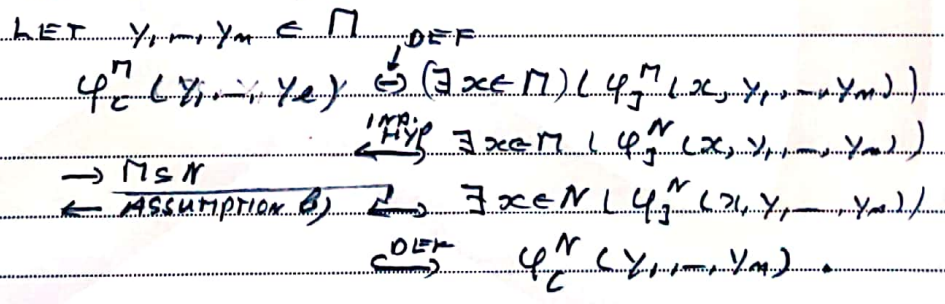 LET y₁, ─, yₘ ∈ M
φ_C^M (y₁, ─, yₑ) ⟺ DEF (∃x∈M) (φ_J^M (x, y₁, ─, yₘ))
⟷ IND. HYP ∃x∈M (φ_J^N (x, y₁, ─, yₘ))
→ M⊆N
← ASSUMPTION B) ⟷ ∃x∈N (φ_J^N (x, y₁, ─, yₘ))
⟷ DEF φ_C^N (y₁, ─, yₘ).